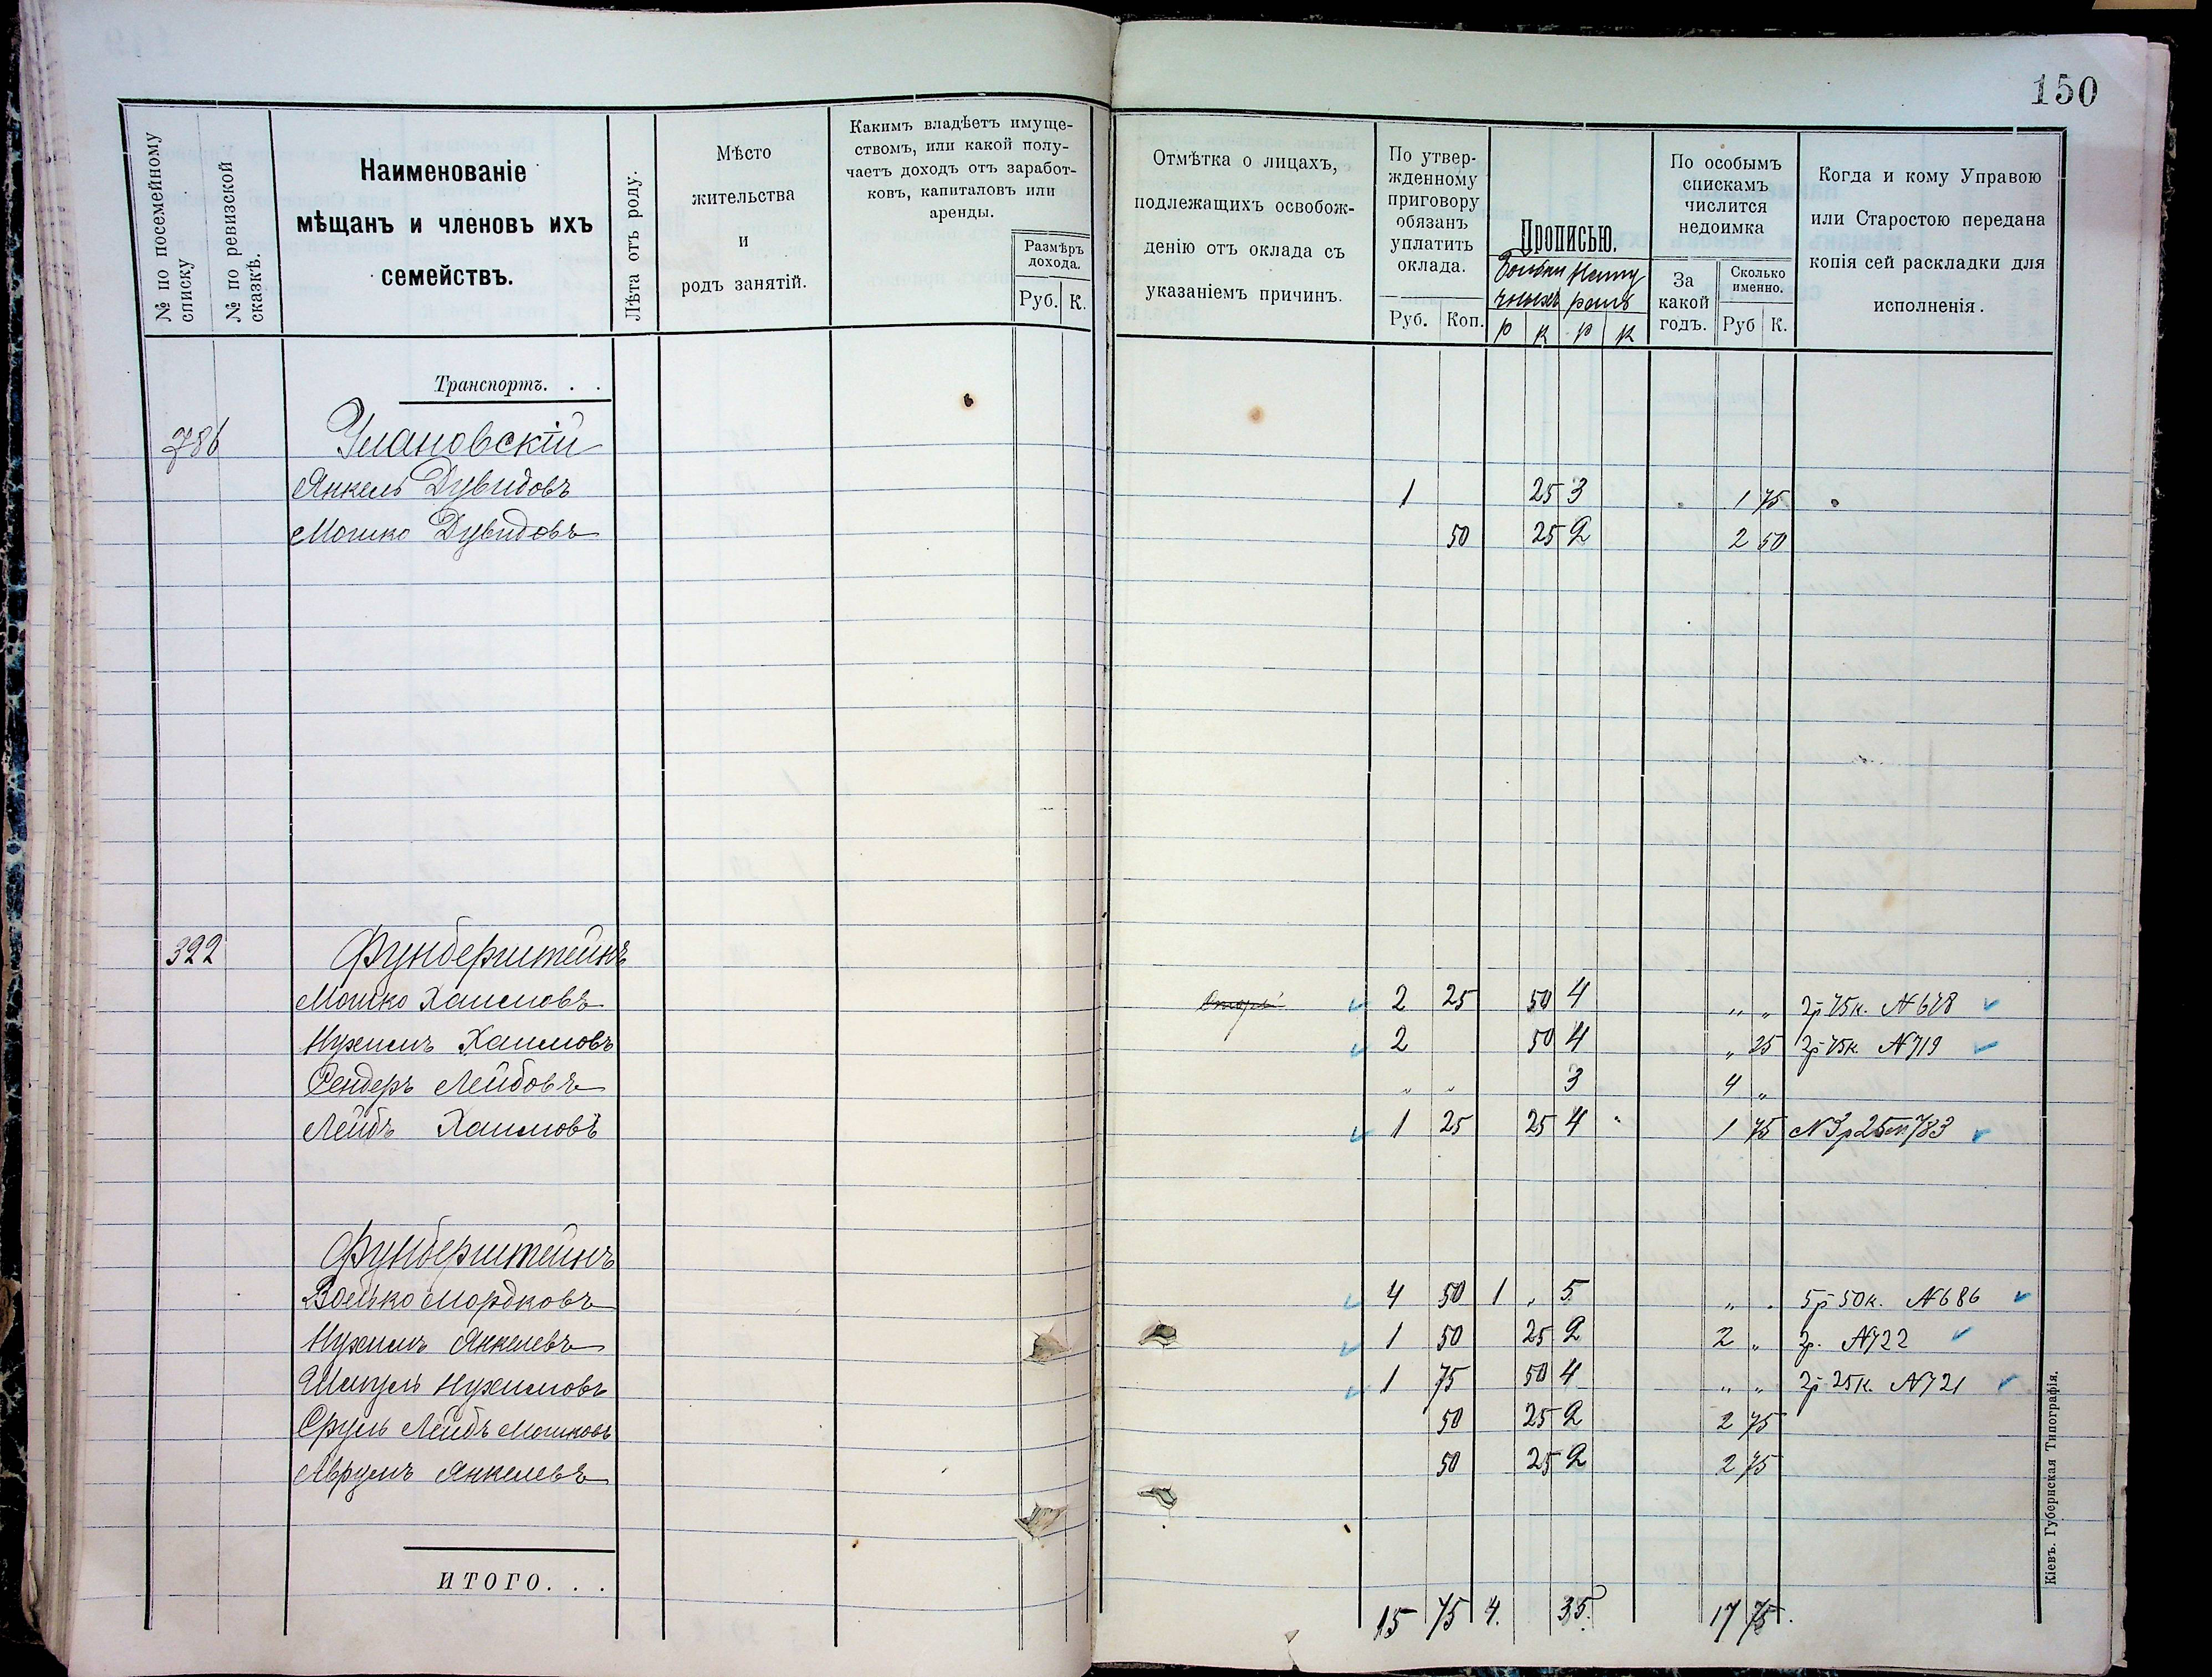 150
№ по посемейному списку
№ по ревизской сказкѣ.
Наименованіе
мѣщанъ и членовъ ихъ
семействъ.
Лѣта отъ роду.
Мѣсто
жительства
и
родъ занятій.
Какимъ владѣетъ имуще-
ствомъ, или какой полу-
чаетъ доходъ отъ заработ-
ковъ, капиталовъ или
аренды.
Размѣръ
дохода.
Руб. К.
Отмѣтка о лицахъ,
подлежащихъ освобож-
денію отъ оклада съ
указаніемъ причинъ.
По утвер-
жденному
приговору
обязанъ
уплатить
оклада.
Руб. Коп.
Прописью.
р к р к
По особымъ
спискамъ
числится
недоимка
За
какой
годъ.
Сколько
именно.
Руб К.
Когда и кому Управою
или Старостою передана
копія сей раскладки для
исполненія.
Транспортъ. . .
786 Улановскій
Янкель Дувидовъ 1 25 3 1 75
Мошко Дувидовъ 50 25 2 2 50
322 Фунберштейнъ
Мошко Хаимовъ 2 25 50 4 " " 2р 75к. №678
Нухимъ Хаимовъ 2 50 4 " 25 2р 75к №719
Сендеръ Лейбовъ " " 3 4 "
Лейбъ Хаимовъ 1 25 25 4 " 1 75
Фунберштейнъ
Волько Мордковъ 4 50 1 " 5 " " 5р 50к. №686
Нухимъ Янкелевъ 1 50 25 2 2 " 2р. №722
Шмуль Нухимовъ 1 75 50 4 " " 2р 25к. №721
Сруль Лейбъ Мошковъ 50 25 2 2 75
Аврумъ Янкелевъ 50 25 2 2 75
ИТОГО. . .
15 75 4. 35. 17 75.
Кіевъ. Губернская Типографія.